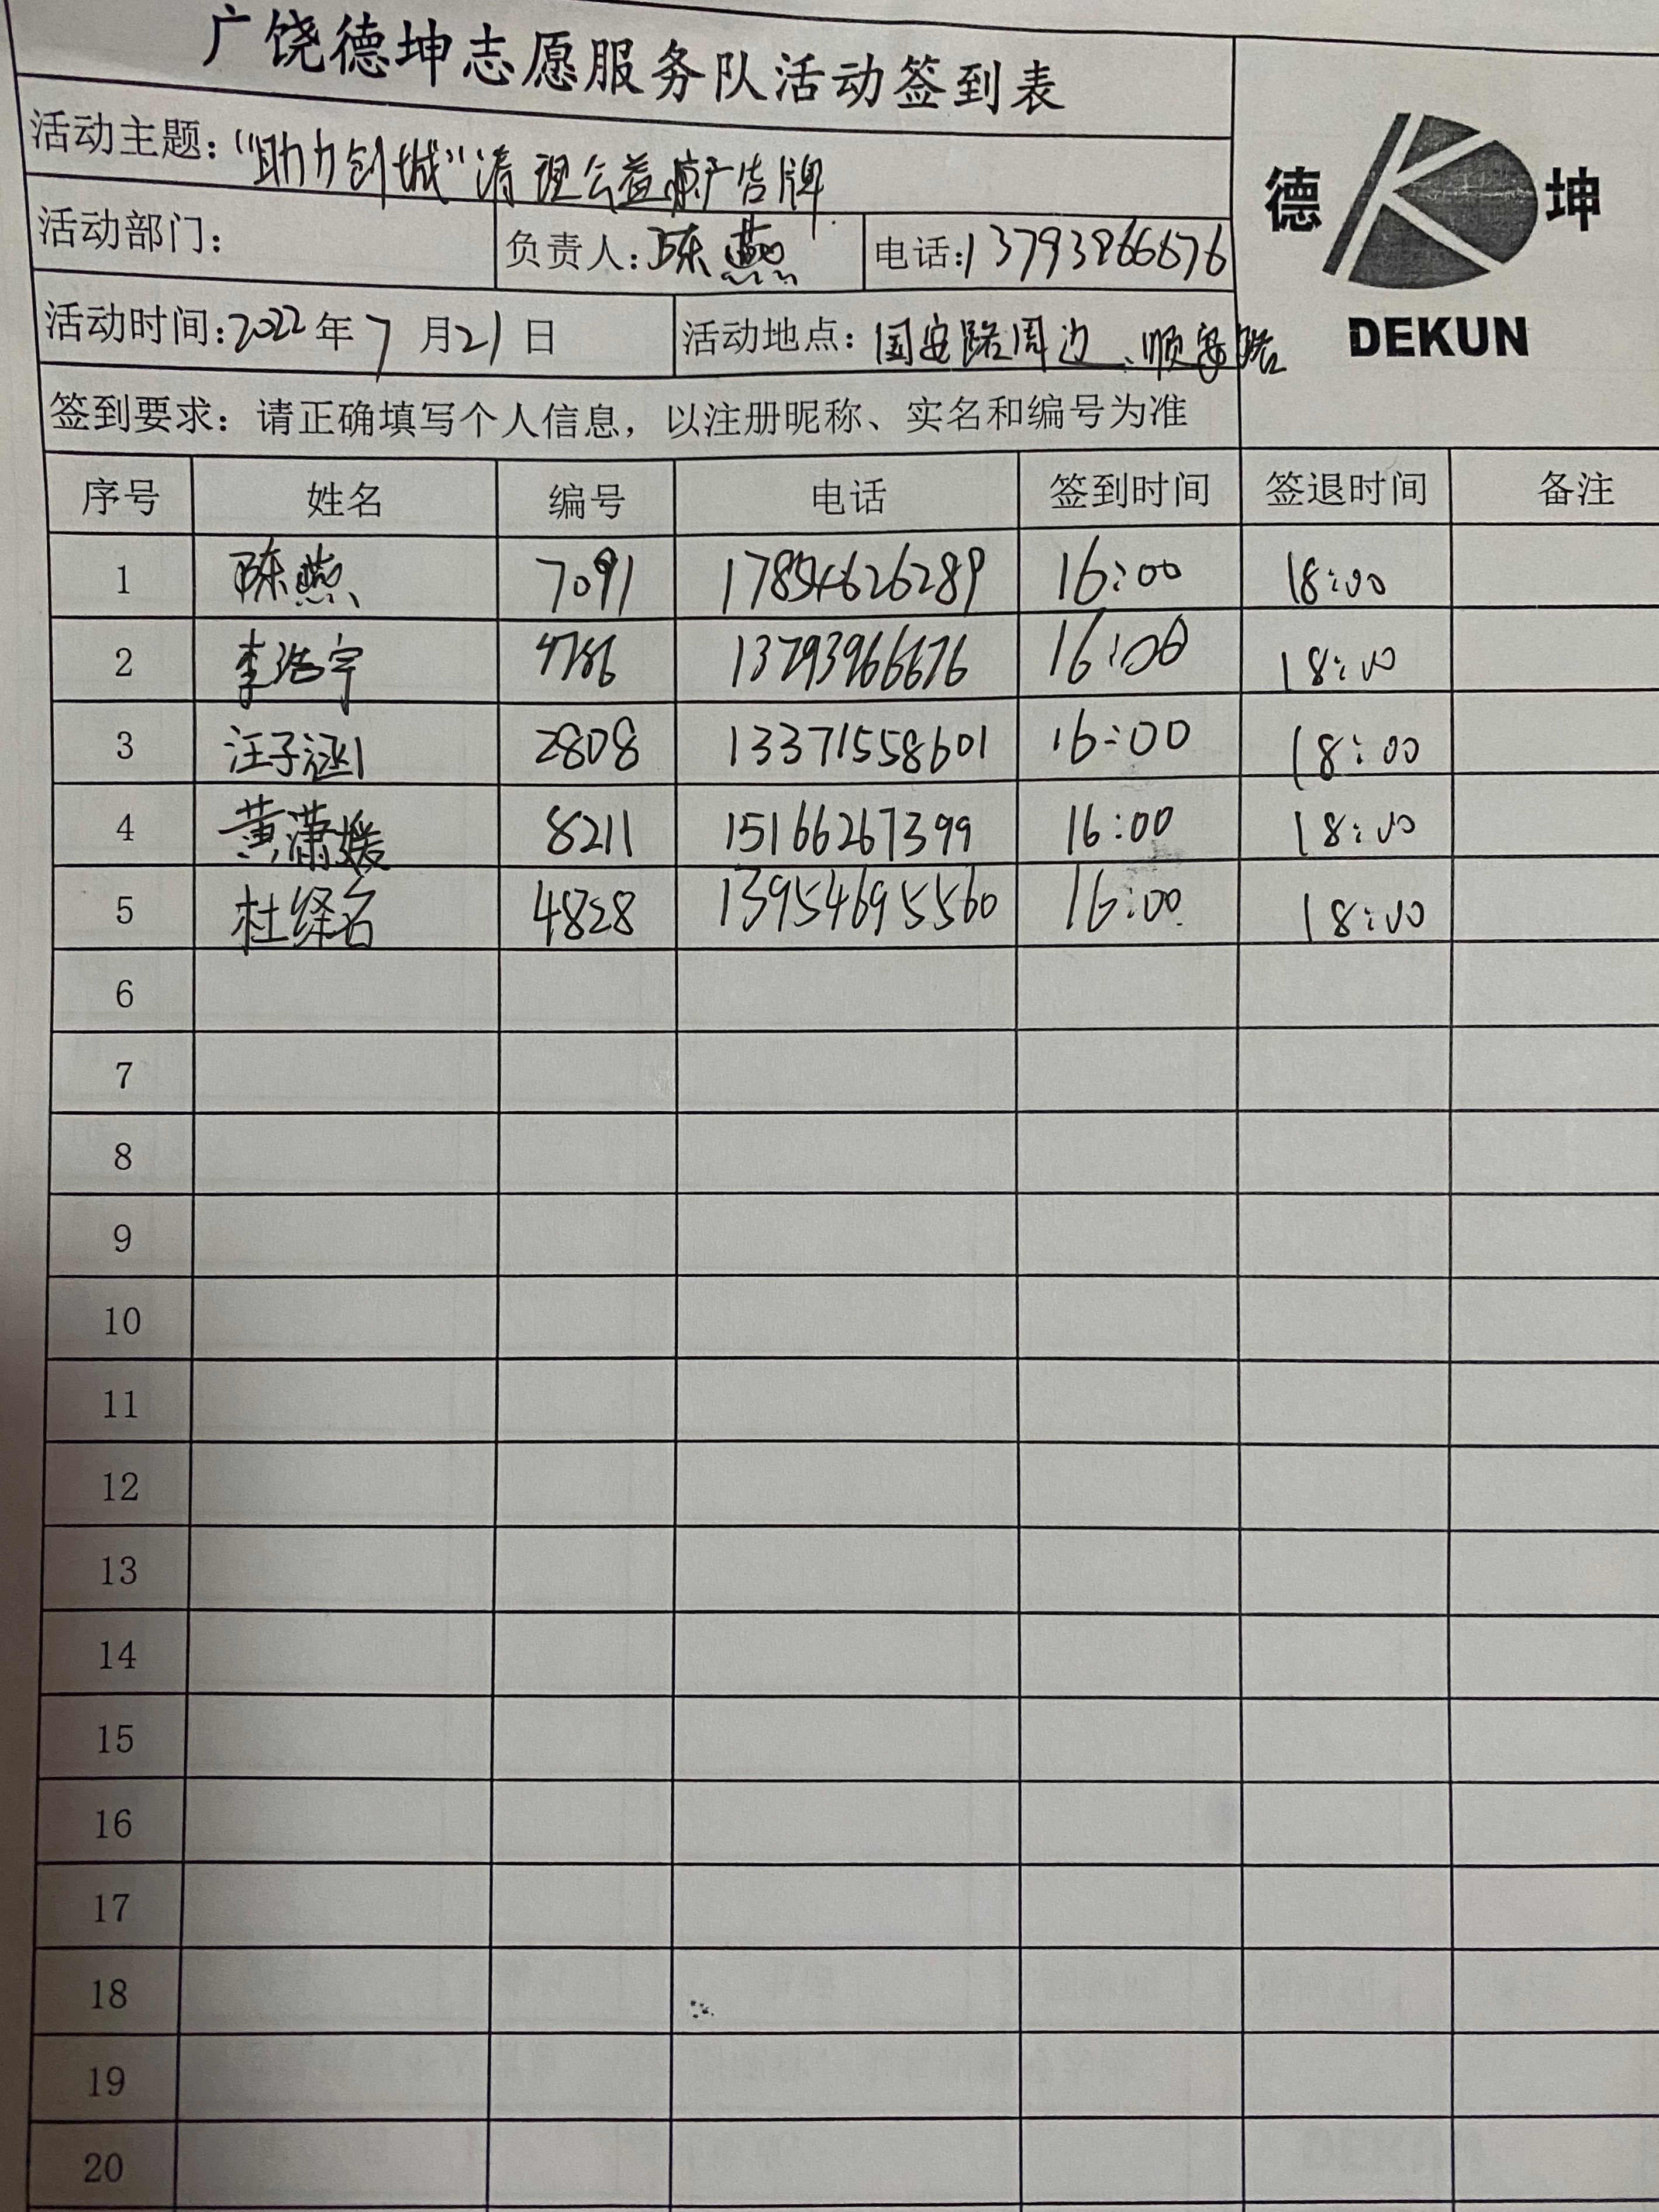 广饶德坤志愿服务队活动签到表
活动主题：“助力创城”清理公益广告牌
德 坤
DEKUN
活动部门： 负责人：陈燕 电话：13793966676
活动时间：2022年7月21日 活动地点：国安路周边、顺安路
签到要求：请正确填写个人信息，以注册昵称、实名和编号为准
序号 姓名 编号 电话 签到时间 签退时间 备注
1 陈燕 7091 17854626289 16:00 18:00
2 李浩宇 4786 13793966676 16:00 18:00
3 汪子涵1 2808 13371558601 16:00 18:00
4 黄潇媛 8211 15166267399 16:00 18:00
5 杜绎名 4828 13954695560 16:00 18:00
6
7
8
9
10
11
12
13
14
15
16
17
18
19
20